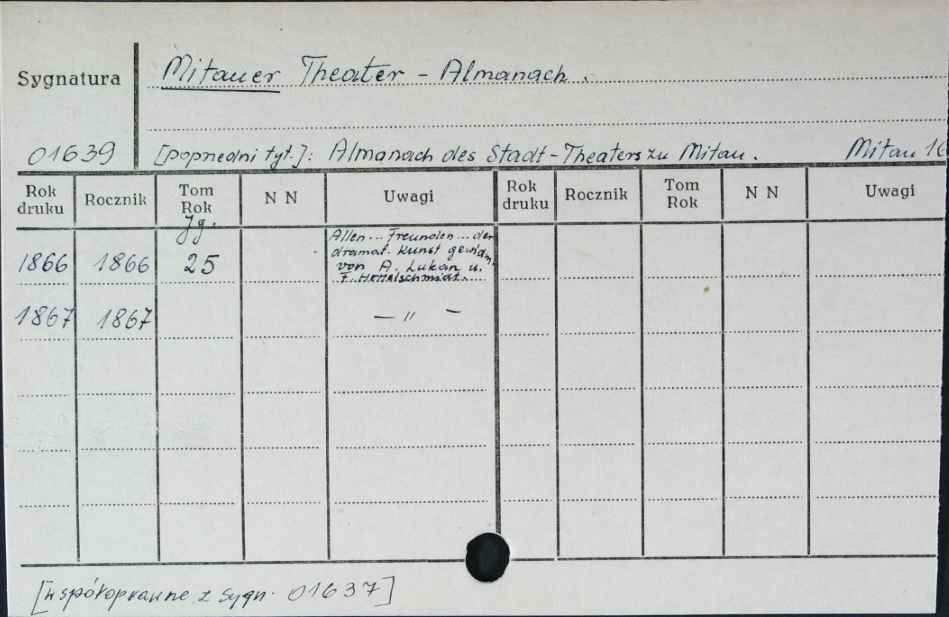 Sygnatura
Mitauer Theater - Almanach.
01639
[poprzedni tyt.]: Almanach des Stadt-Theaters zu Mitau. Mitau 16
Rok druku Rocznik Tom Rok N N Uwagi Rok druku Rocznik Tom Rok N N Uwagi
Jg.
1866 1866 25 Allen... Freunden... der
dramat. Kunst gewidm.
von A. Lukan u.
F.
1867 1867 — " —
[współoprawne z sygn. 01637]